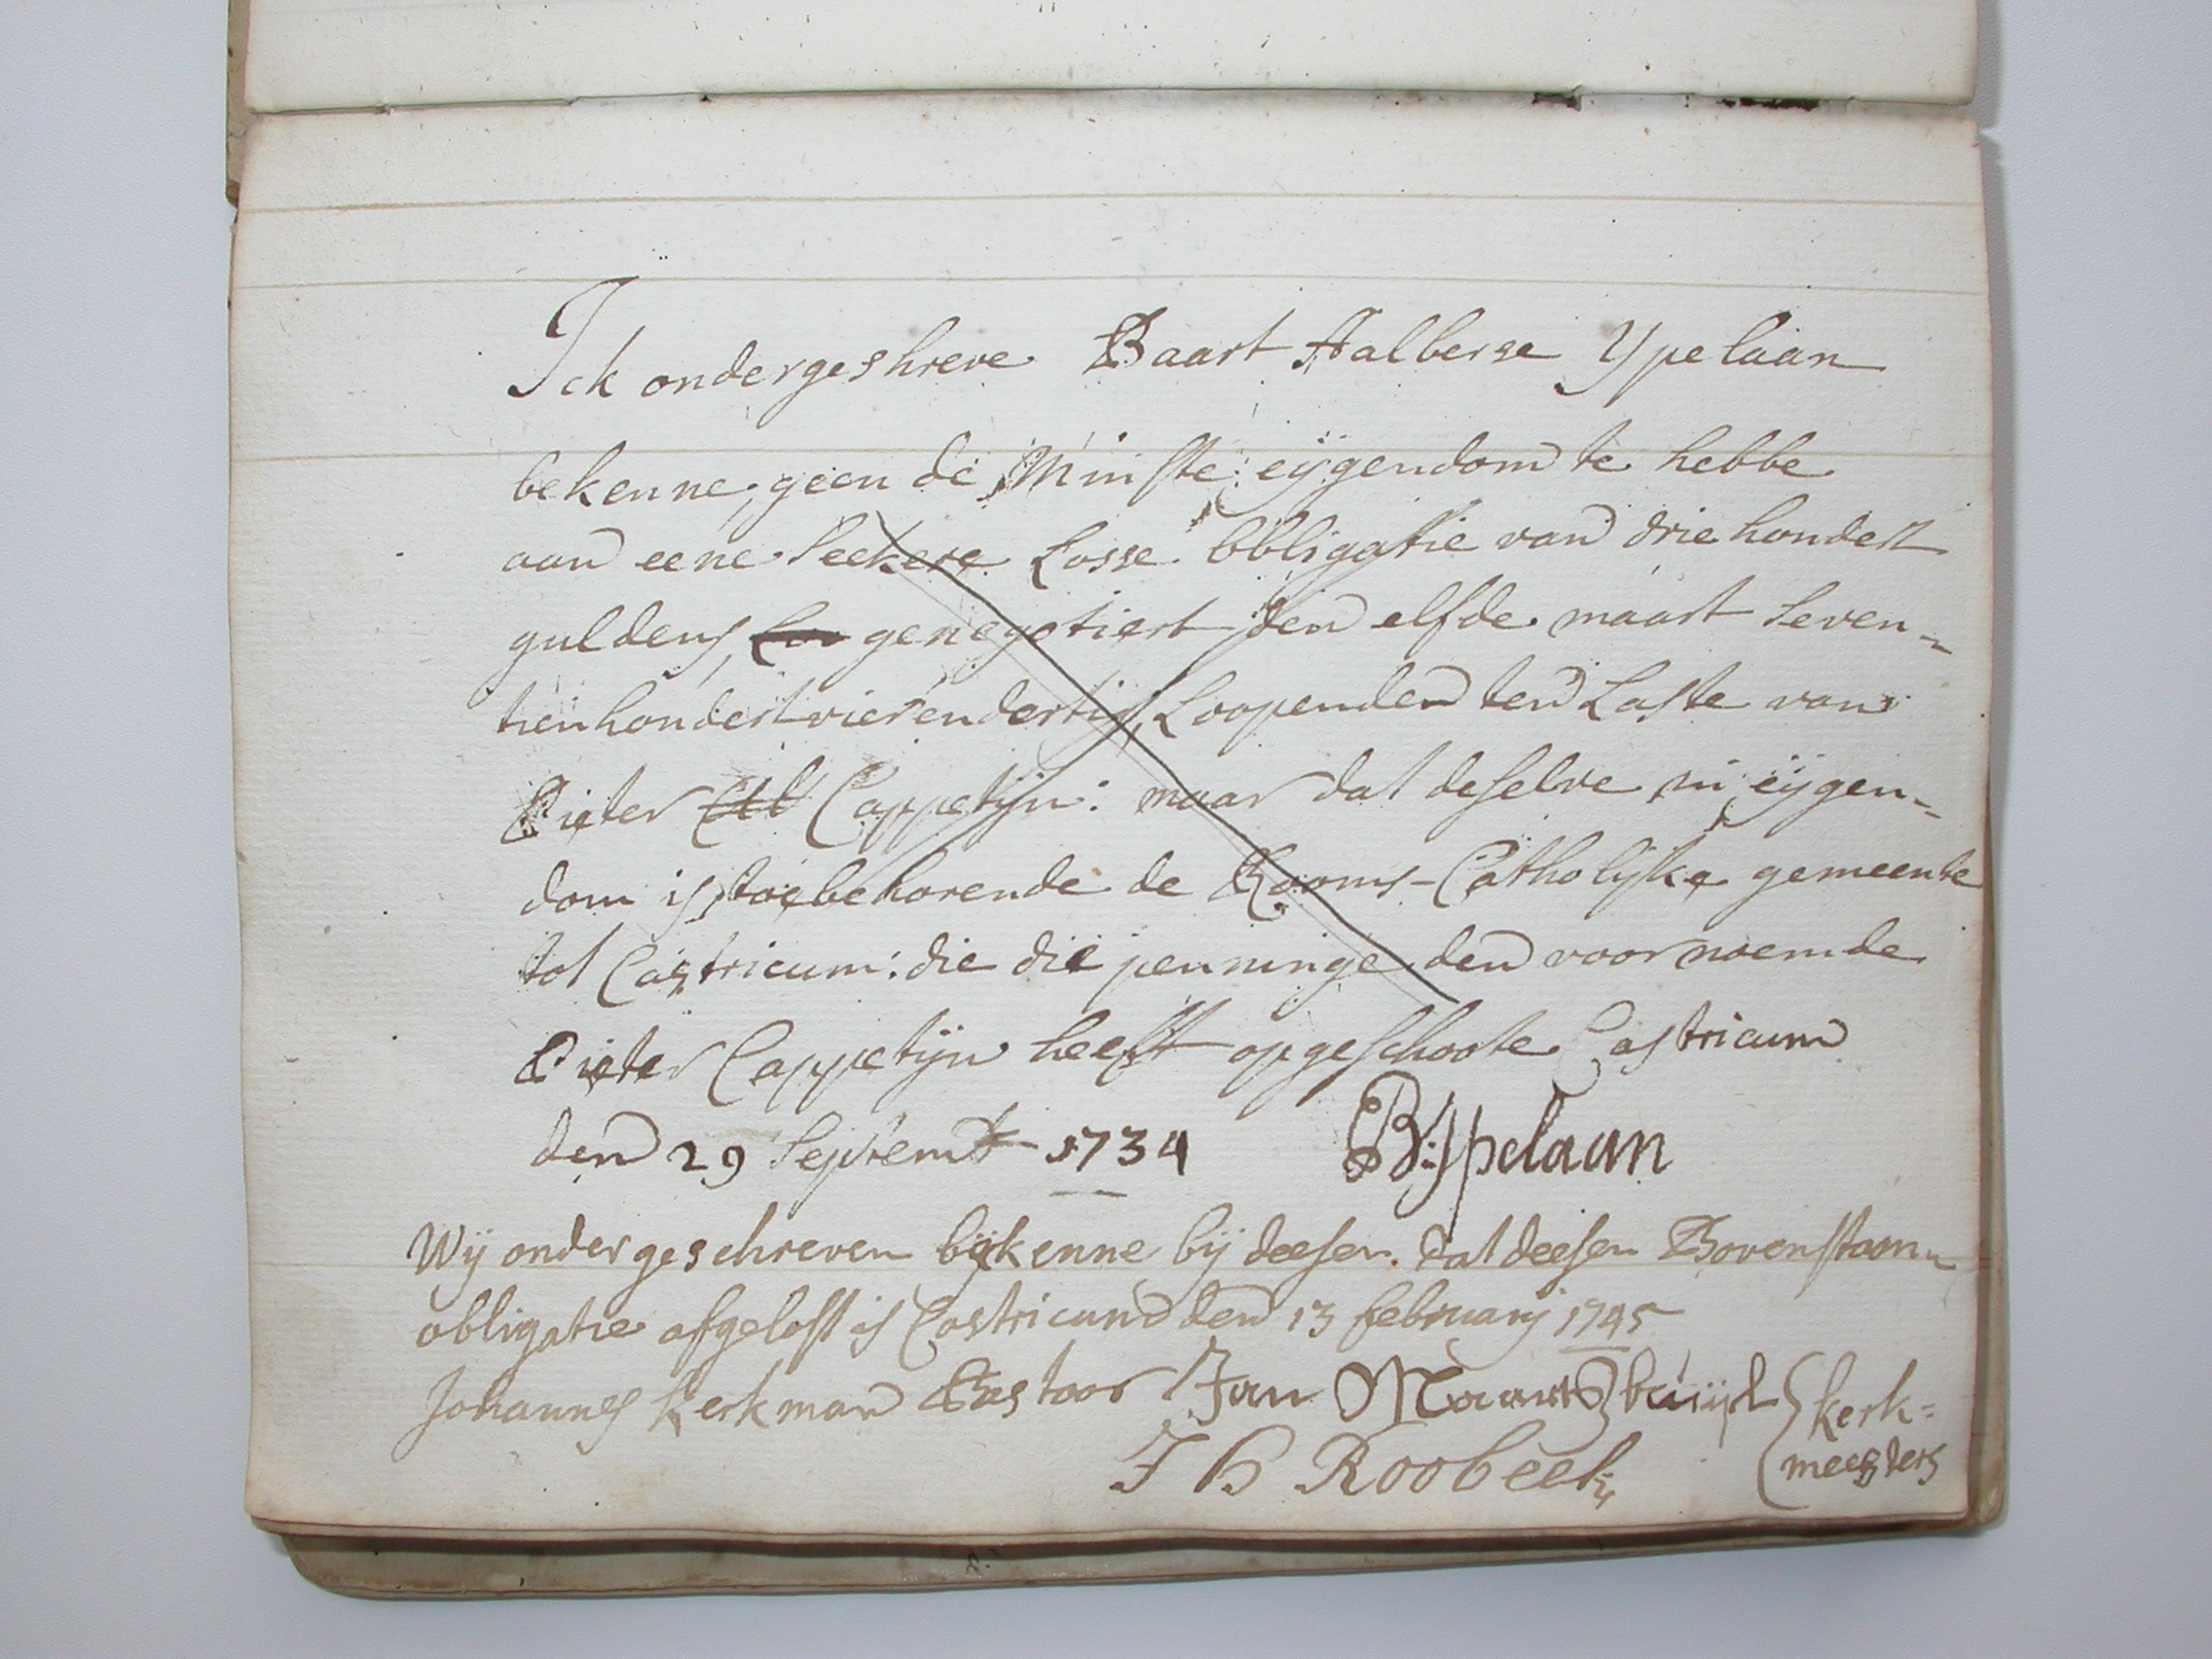 Ick ondergeshreve Baart Aalberse Ypelaan
bekenne, geen de Minste eijgendom te hebbe
aan eene Seekere Losse Obligatie van drie hondert
guldens, genegotiert den elfde maart seven-
tienhondert vierendertig, Loopenden ten Laste van
Pieter Cappetijn: maar dat deselve in eijgen-
dom is toebehorende de Rooms-Catholijke gemeente
tot Castricum: die die penninge den voornoemde
Pieter Cappetijn heeft opgeschoote Castricum
den 29 Septemb 1734 B:Ypelaan
Wij ondergeschreven bekenne bij deesen. dat deesen Bovenstaen
obligatie afgelost is Castricum den 13 februarij 1745
Johannes Kerkman Pastoor Jan Maarts kerk=
J B Roobeek meesters